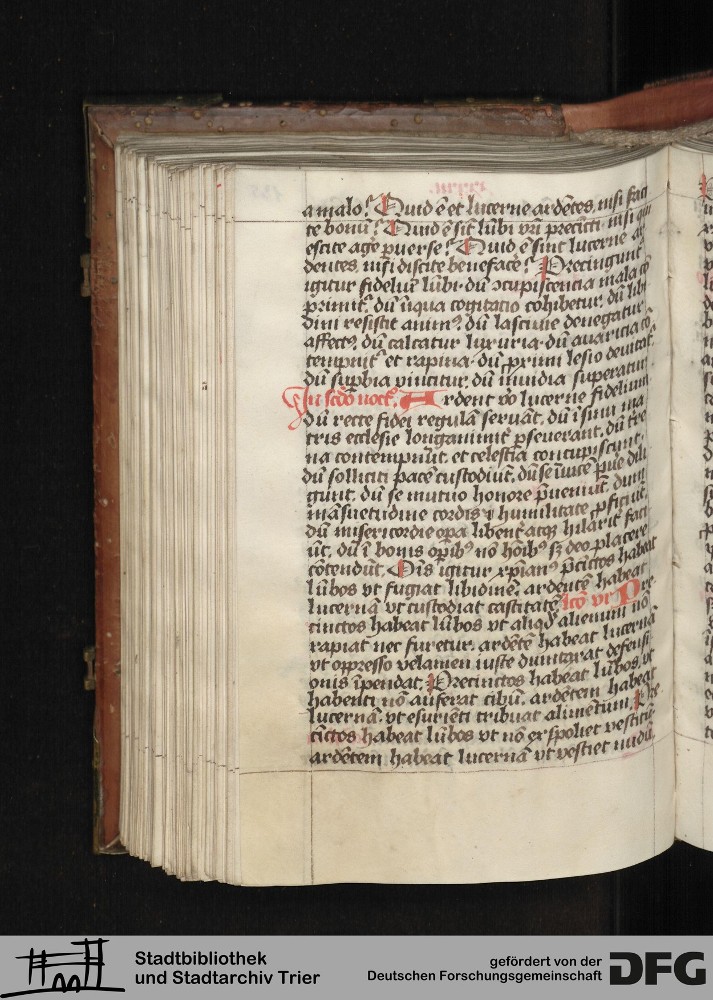 a malo? Quid ē et lucerne ardētes, nisi faci
te bonū? Quid ē sīt lūbi vrī precīcti, nisi qui
escite agē ꝑuerse? Quid ē sint lucerne ar
dentes, nisi discite benefacē? Precingunt̄
igitur fideliū lūbi. dū ɔcupiscentia mala cō
primit̄. dū iniqua cogitatio cohibetur. dū libi
dini resistit animꝰ. dū lasciuie denegatur
affectꝰ. dū calcatur luxuria. dū auaricia cō
tempnit̄ et rapina. dū ꝓximi lesio deuitat̄.
dū suꝑbia vincitur. dū inuidia superatur
In scdo noct̄. Ardent v̄o lucerne fidelium
dū recte fidei regulā seruāt. dū ī sinu ma
tris ecclesie longanimit̄ ꝑseuerant. dū tre
na contempnūt. et celestia concupiscunt.
dū solliciti pacē custodiūt. dū se īuicē pue dili
gūnt. dū se mutuo honore p̄ueniūt. dum
māsuetudine cordis ī humilitate ꝓficiūt.
dū misericordie oꝑa libent̄ atqꝫ hilarit̄ faci
ūt. dū ī bonis oꝑibꝰ nō hoībꝰ sꝫ deo placere
cōtendūt. Oīs igitur xpianꝰ p̄cīctos habeat
lūbos vt fugiat libidinē. ardētē habeat
lucernā vt custodiat castitatē. Pre
cinctos habeat lūbos vt aliqd̄ alienum nō
rapiat nec furetur. ardētē habeat lucernā
vt oppresso velamen iuste defensi
onis īpendat. Precinctos habeat lūbos, vt
habenti nō auferat cibū. ardētem habeat
lucernā. vt esuriēti tribuat alimētum. Pre
cīctos habeat lūbos vt nō exspoliet vestitū
ardētem habeat lucernā vt vestiet nudū.
Stadtbibliothek
und Stadtarchiv Trier
gefördert von der
Deutschen Forschungsgemeinschaft
DFG